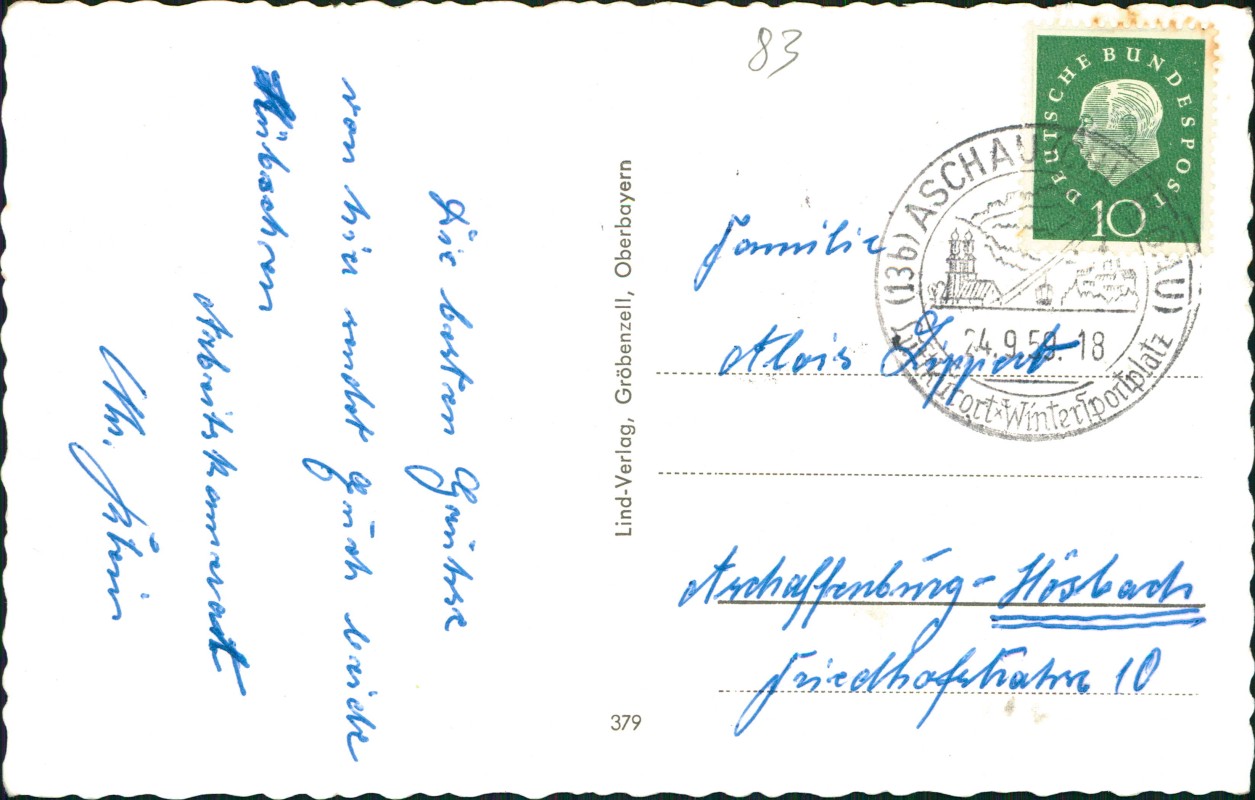 Die besten Grüsse
von hier sendet Euch beide
Hübschen
Arbeitskamerad
Lind-Verlag, Gröbenzell, Oberbayern
379
83
DEUTSCHE BUNDESPOST
10
(13b) ASCHAU
24.9.59.-18
Luftkurort × Wintersportplatz
Familie
Alois Lippert
Aschaffenburg-Hösbach
Friedhofstrasse 10